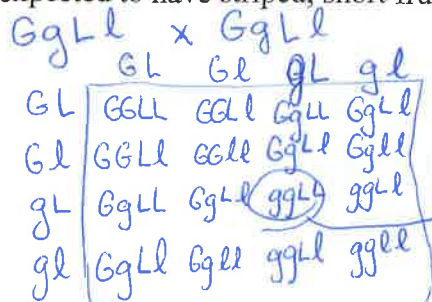 expected to have striped, short
GgLl x GgLl
GL Gl gL gl
GL GGLL GGLl GgLL GgLl
Gl GGLl GGll GgLl Ggll
gL GgLL GgLl ggLL ggLl
gl GgLl Ggll ggLl ggll